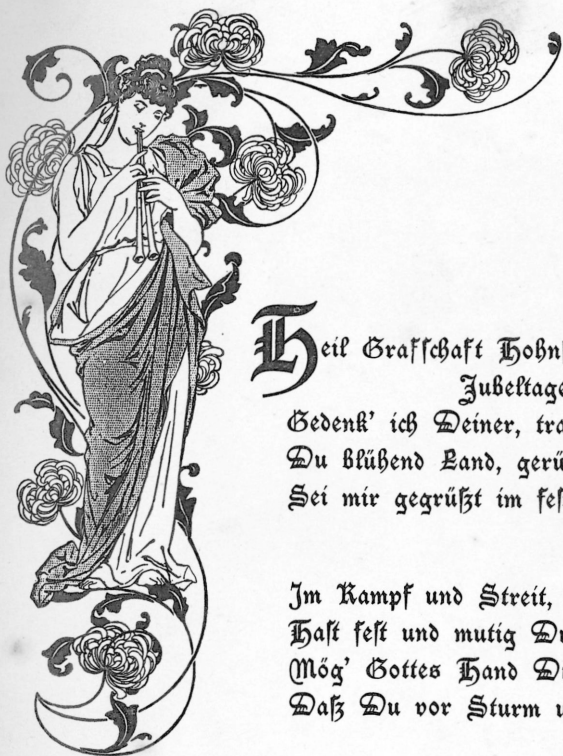 Heil Graffschaft Hohn
Jubeltage
Gedenk' ich Deiner, tra
Du blühend Land, gerü
Sei mir gegrüßt im fes
Im Kampf und Streit,
Hast fest und mutig Du
Mög' Gottes Hand Di
Daß Du vor Sturm u